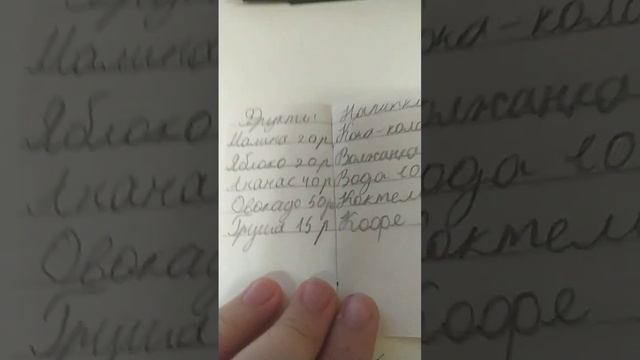 Фрукты
Малина 20 р
Яблоко 20 р
Ананас 40 р
Овокадо 50 р
Груша 15 р
Напитки
Кока-кола
Волжанка
Вода 10
Коктел
Кофе